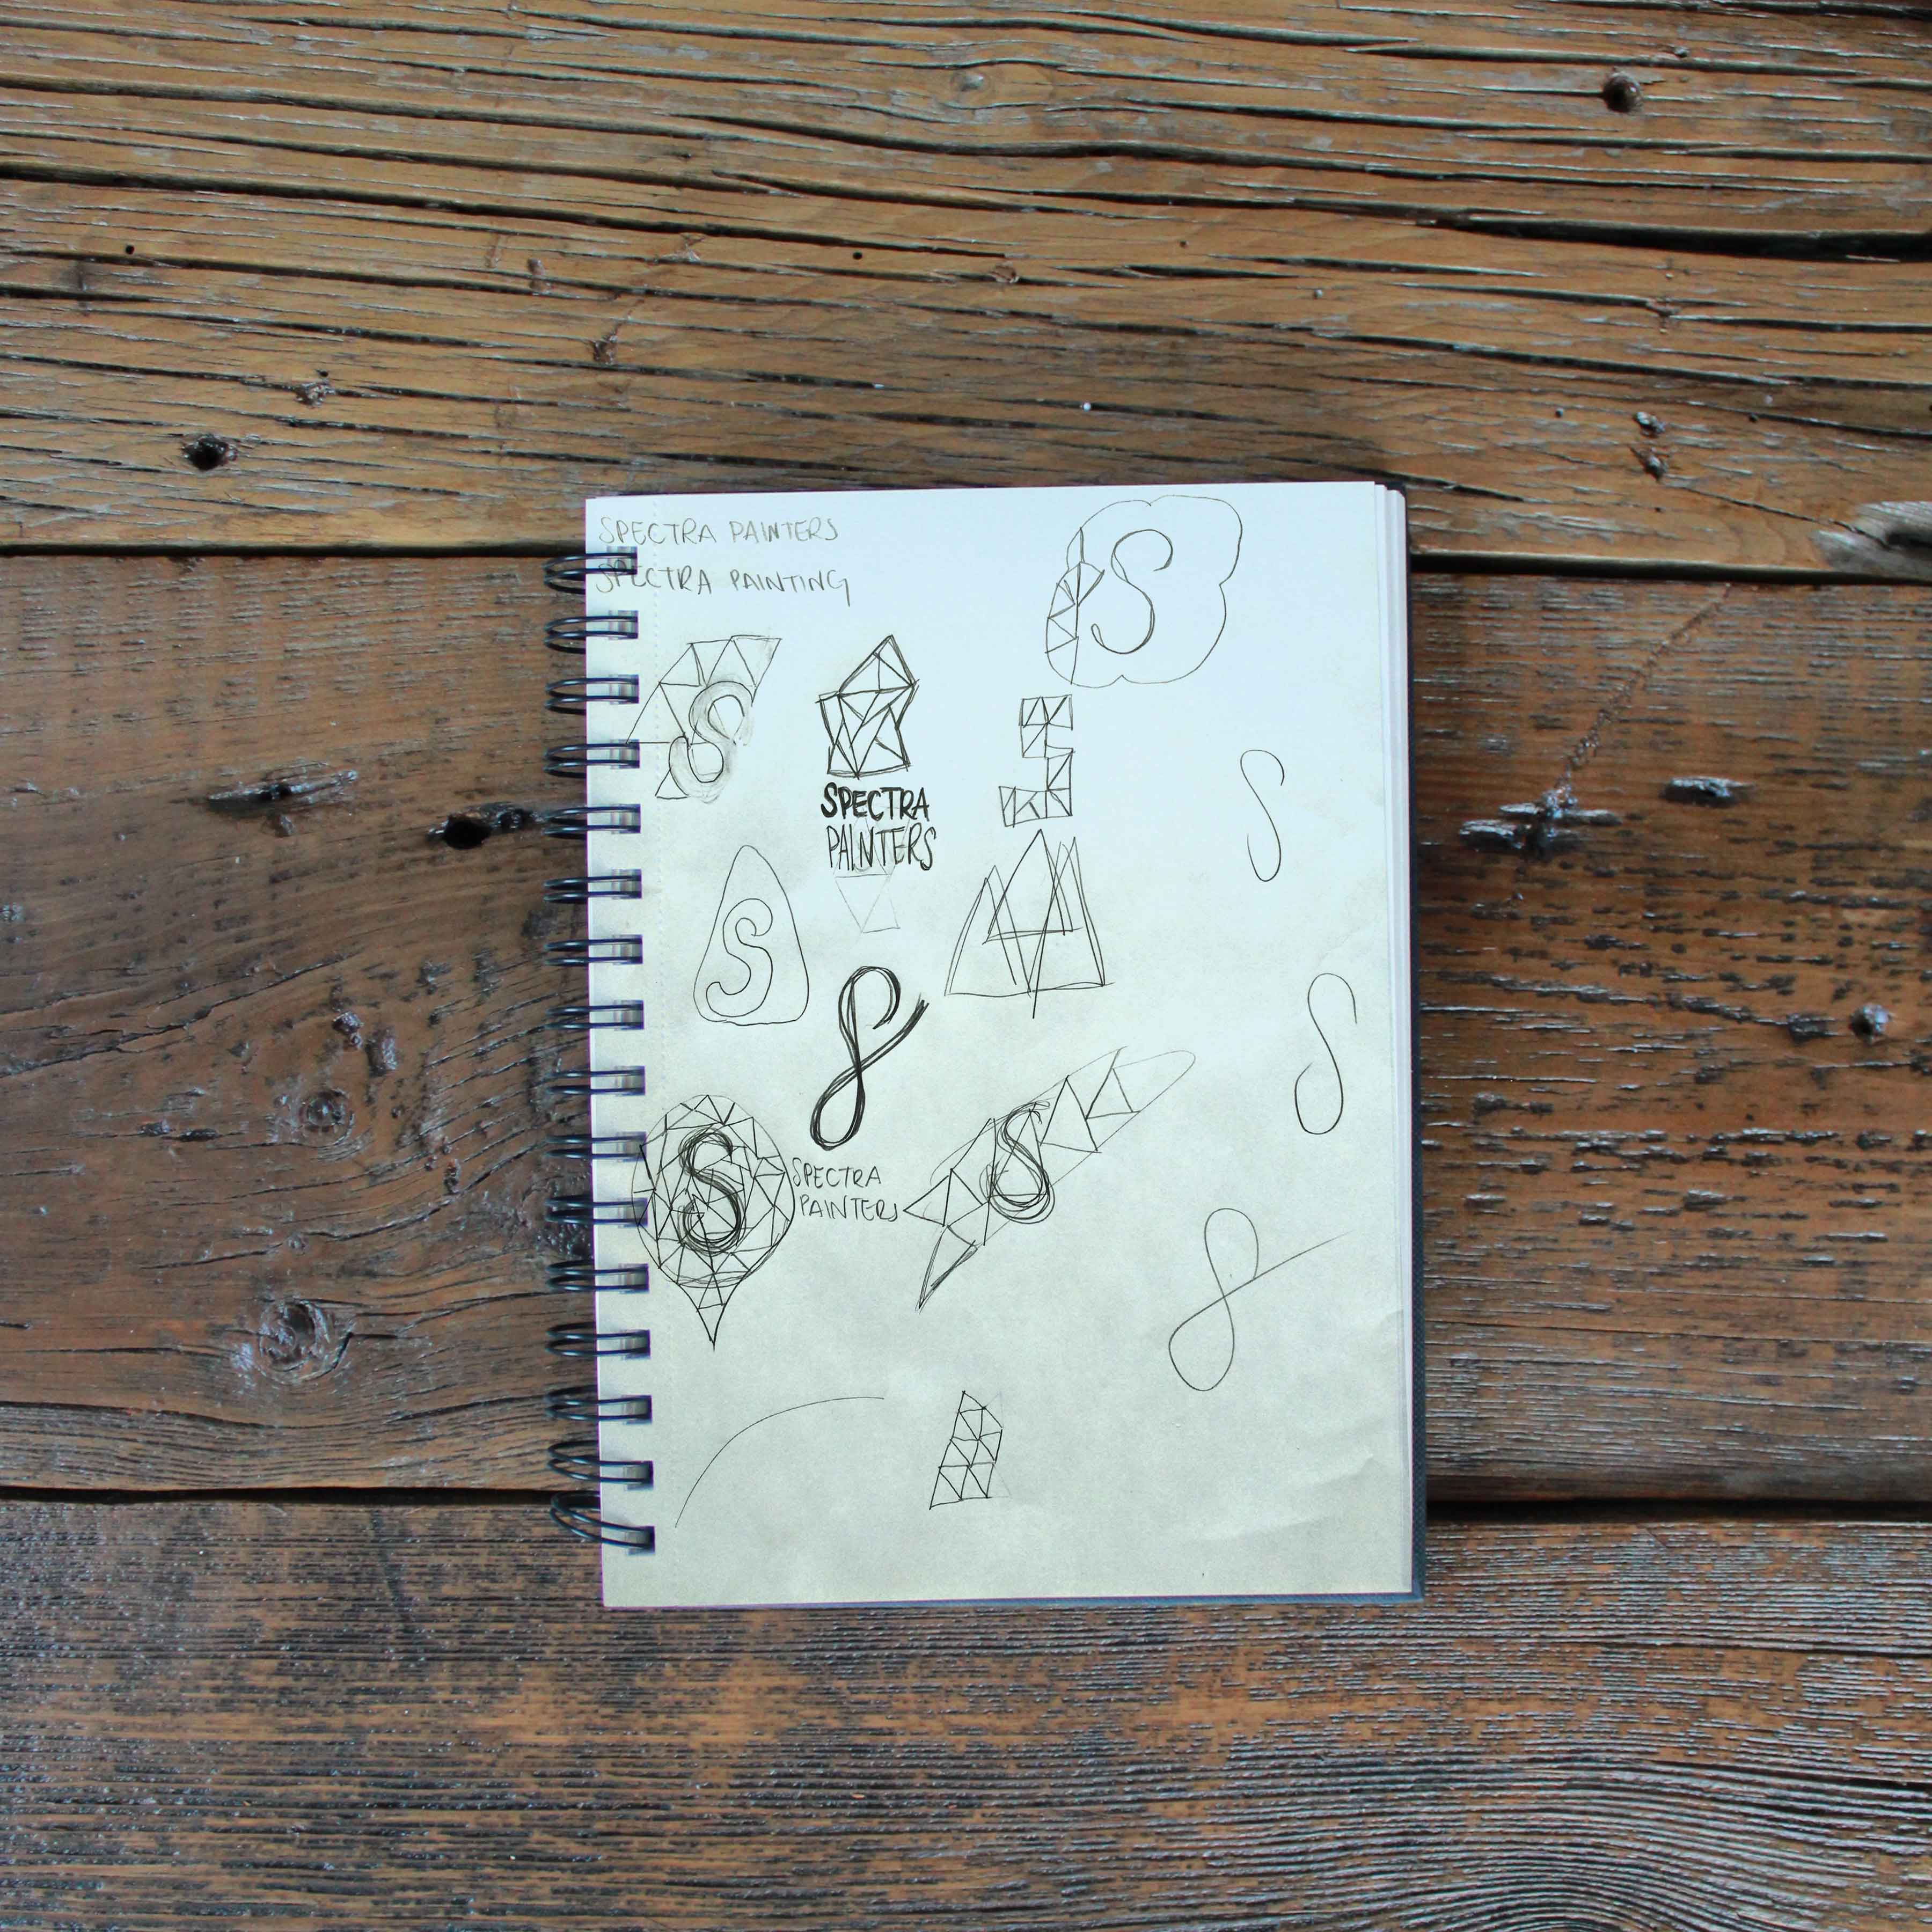 SPECTRA PAINTERS
SPECTRA PAINTING
S
S
SPECTRA
PAINTERS
S
S
S
S
S
SPECTRA
PAINTERS
S
S
S